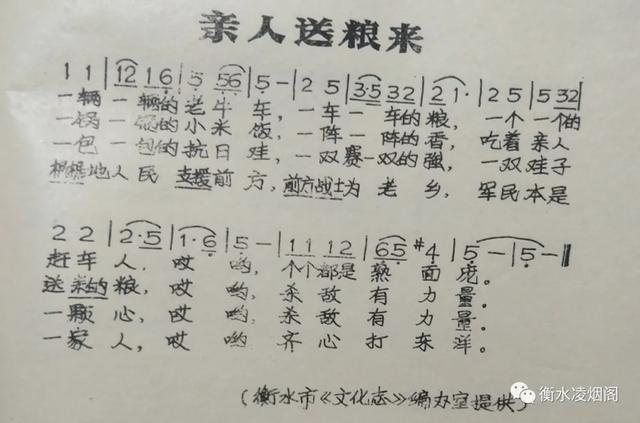 亲人送粮来
1 1 | 12 16 | 5 56 | 5 - | 2 5 | 3·5 32 | 2 1· | 2 5 | 5 32 |
一辆一辆的老牛车，一车一车的粮，一个一个的
一锅一锅的小米饭，一阵一阵的香，吃着亲人
一包一包的抗日鞋，一双赛一双的强，一双鞋子
根据地人民支援前方，前方战士为老乡，军民本是
2 2 | 2·5 | 1·6 | 5 - | 11 12 | 65 #4 | 5 - | 5 - ‖
赶车人，哎哟，个个都是熟面庞。
送来的粮，哎哟，杀敌有力量。
一颗心，哎哟，杀敌有力量。
一家人，哎哟，齐心打东洋。
(衡水市《文化志》编办室提供)
衡水凌烟阁